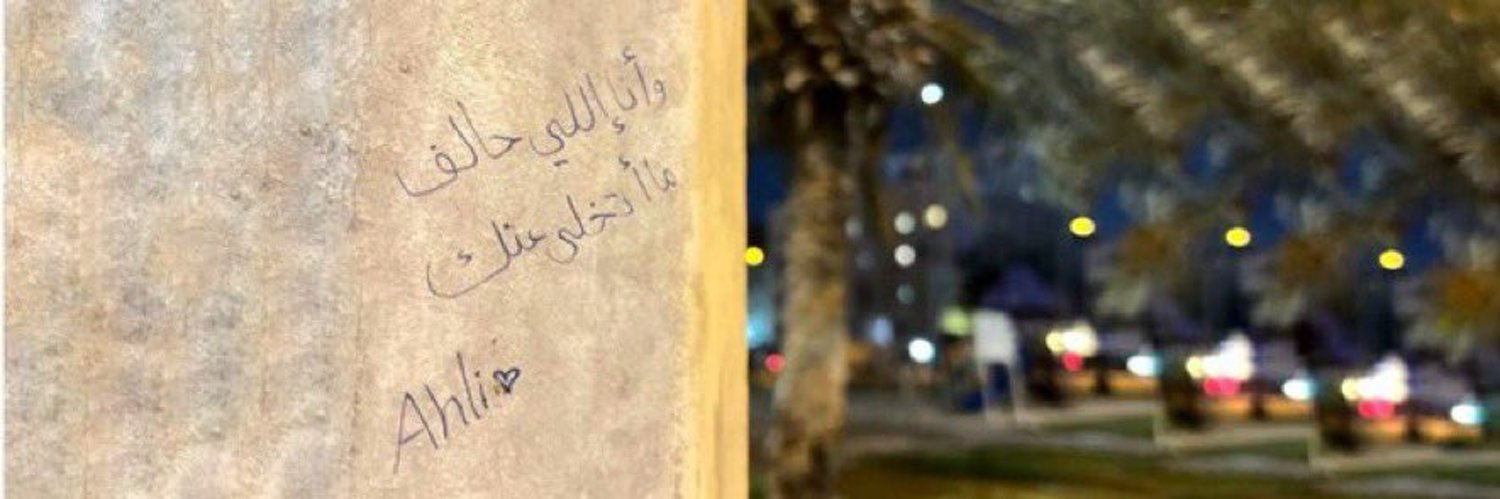 وأنا إللي حالف
ما أتخلى عنك
Ahli